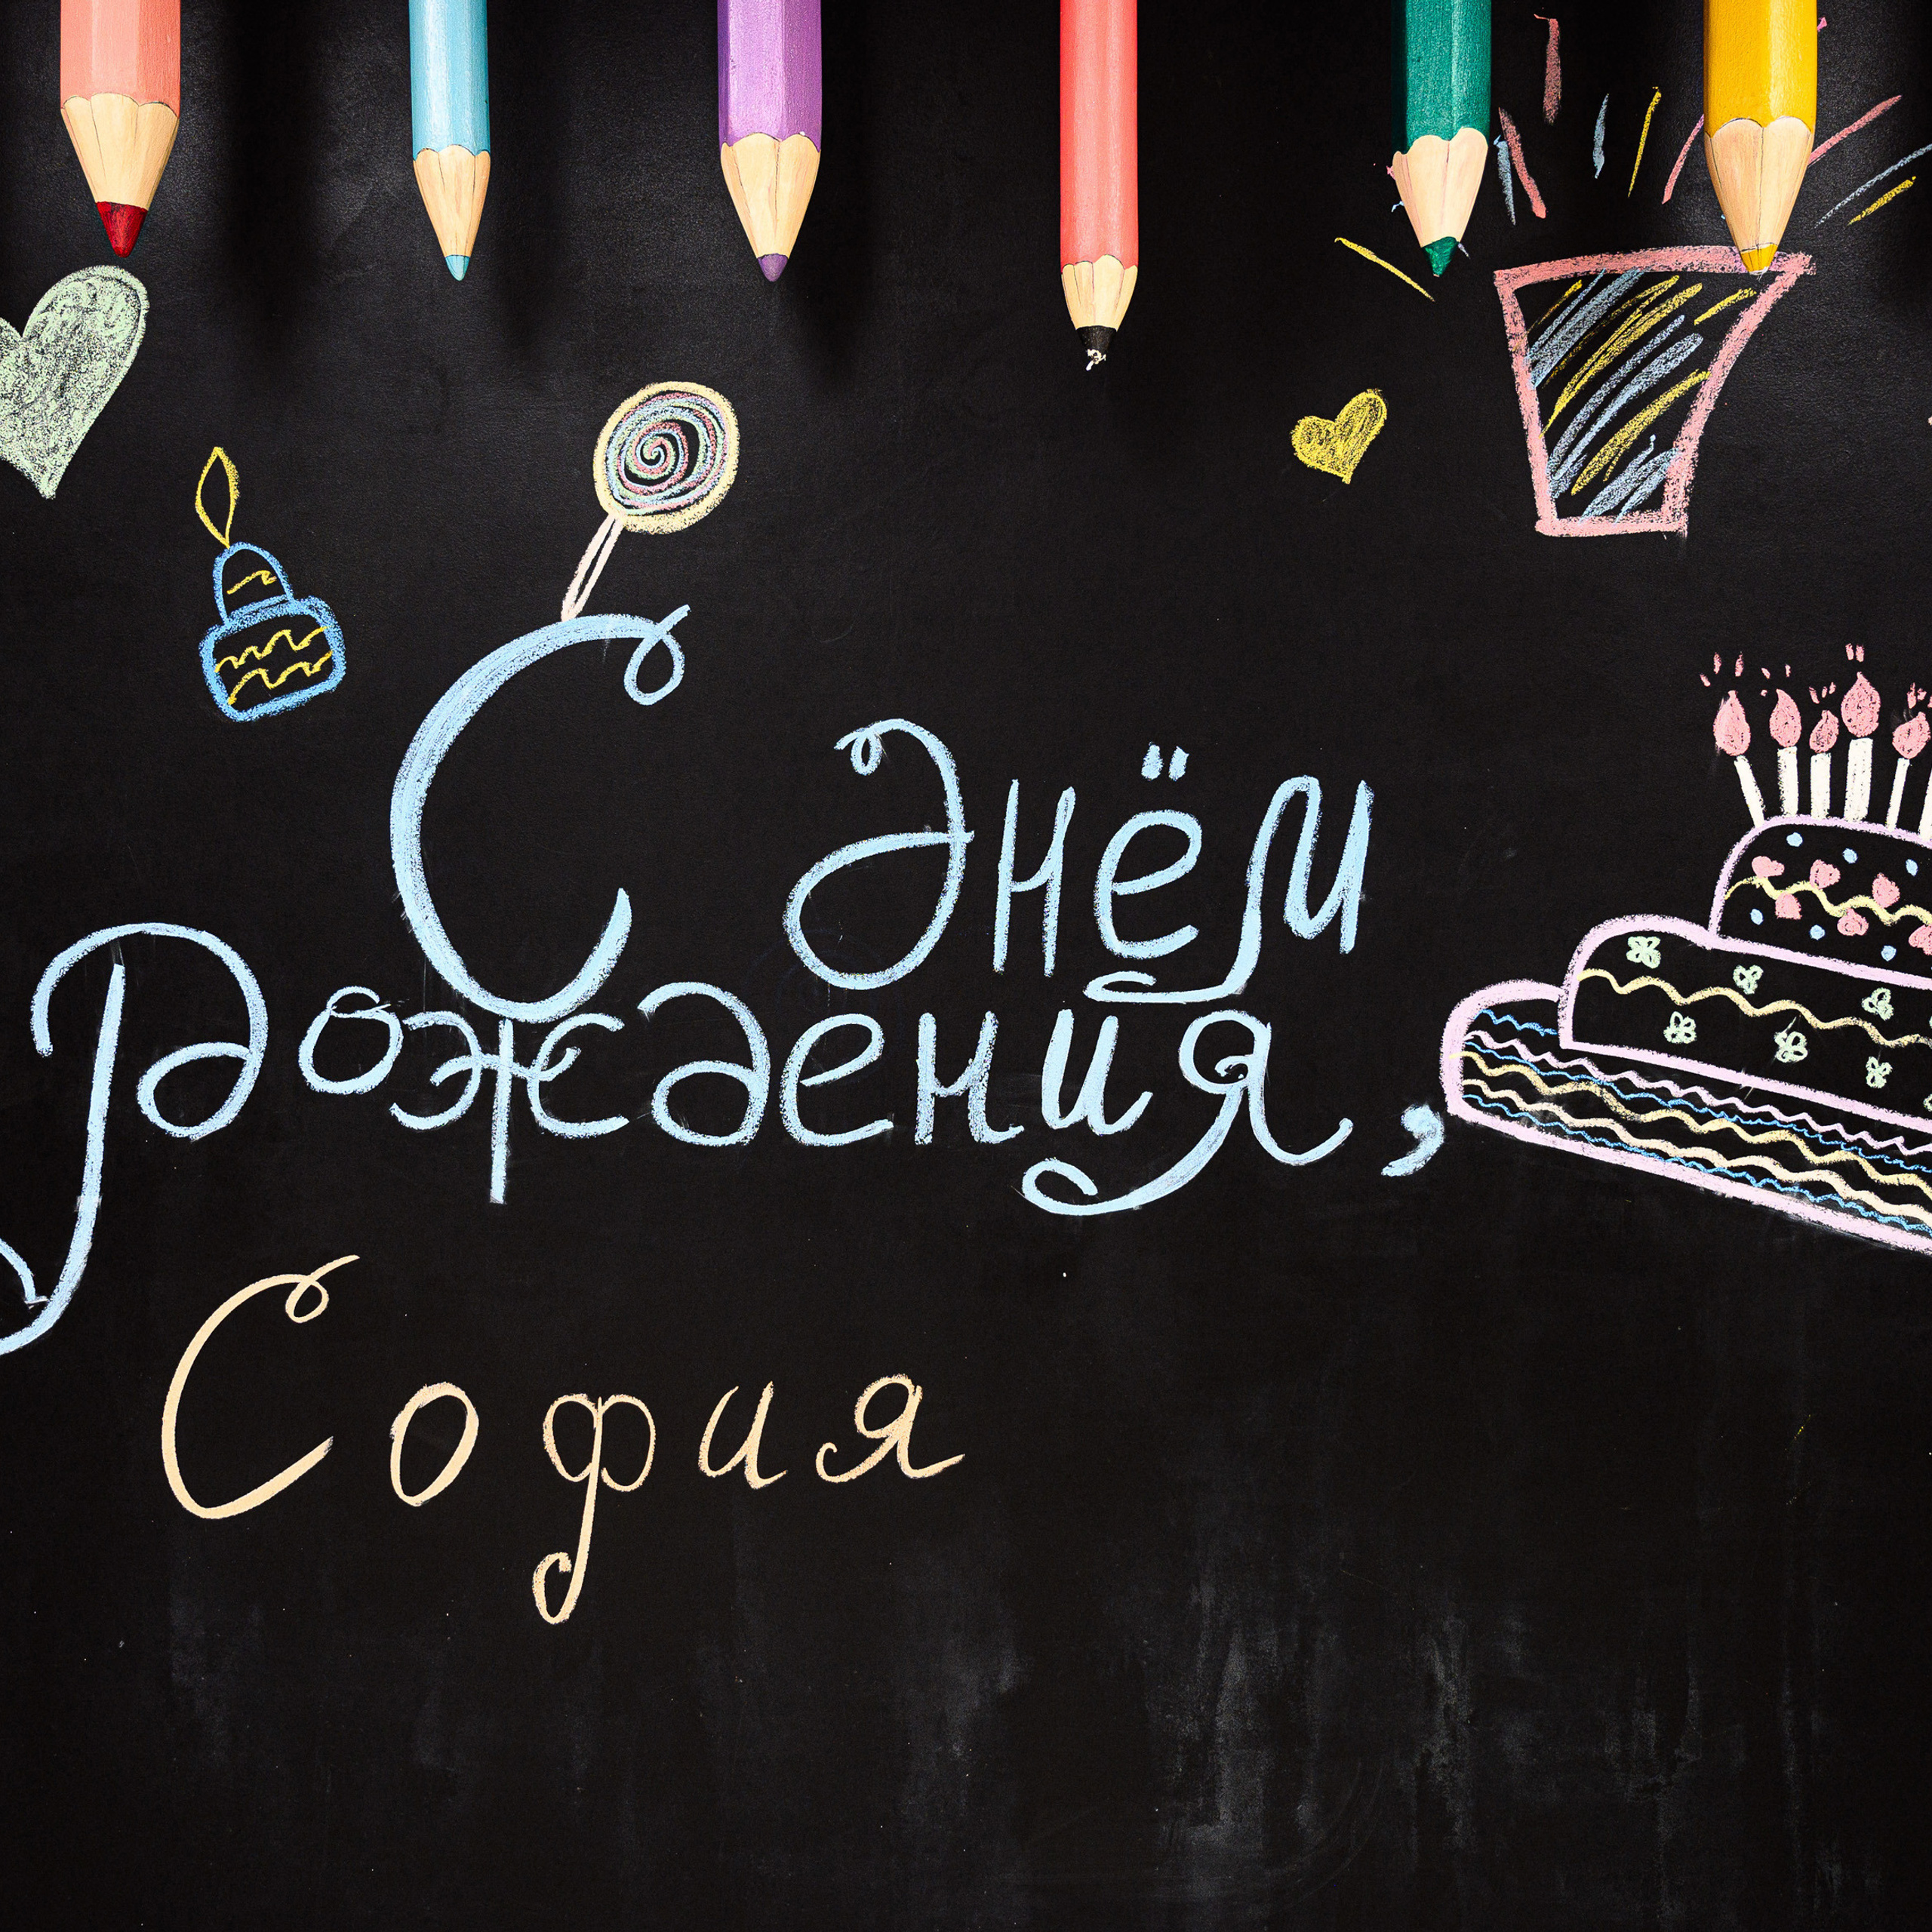 С днём
рождения,
София